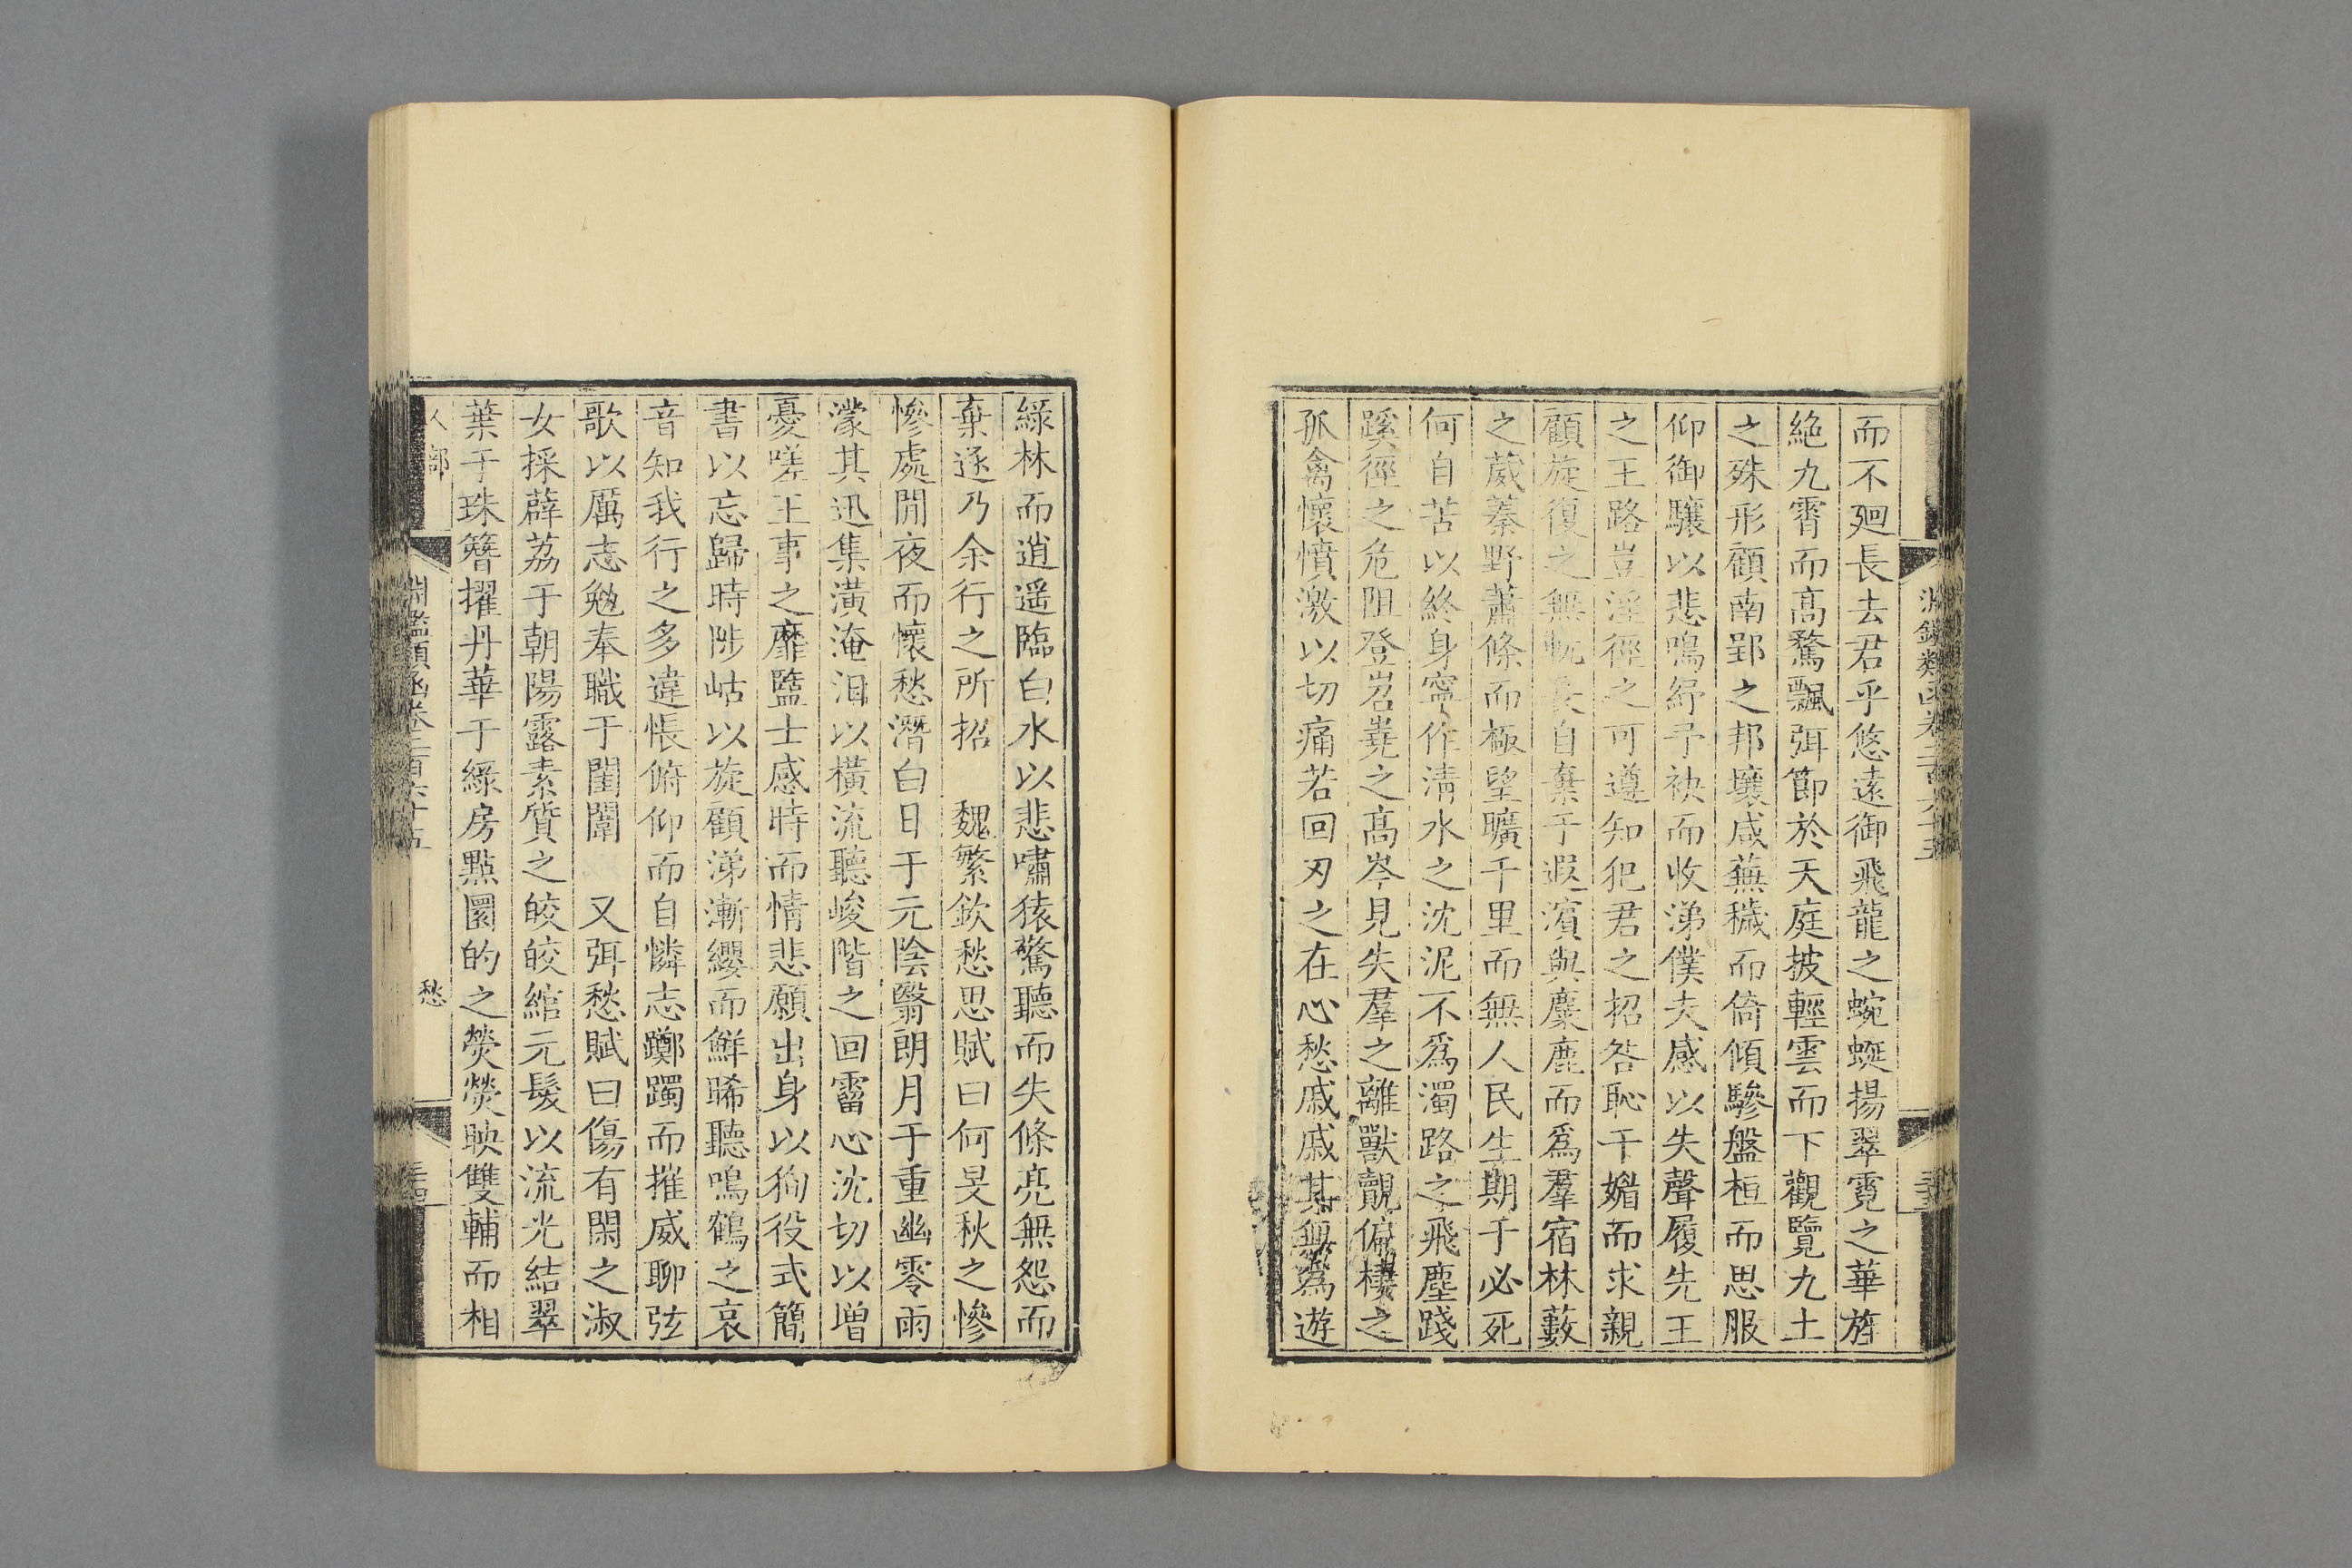 而不廻長去君乎悠遠御飛龍之蜿蜒揚翠霓之華旌
絶九霄而高騖飄弭節於天庭披輕雲而下觀覽九土
之殊形顧南郢之邦壤咸蕪穢而倚傾驂盤桓而思服
仰御驤以悲鳴紓予袂而收涕僕夫感以失聲履先王
之王路豈淫徑之可遵知犯君之招咎恥干媚而求親
顧旋復之無軏長自棄于遐濱與麋鹿而爲羣宿林藪
之葳蓁野蕭條而極望曠千里而無人民生期于必死
何自苦以終身寧作清水之沈泥不爲濁路之飛塵踐
蹊徑之危阻登岧嶤之高岑見失羣之離獸覿偏棲之
孤禽懷憤激以切痛若回刃之在心愁戚戚其無爲遊
綠林而逍遥臨白水以悲嘯猿驚聽而失條亮無怨而
棄逐乃余行之所招　魏繁欽愁思賦曰何旻秋之慘
慘處閒夜而懷愁潛白日于元陰翳朗月于重幽零雨
濛其迅集潢淹汨以橫流聽峻階之回霤心沈切以增
憂嗟王事之靡盬士感時而情悲願出身以狥役式簡
書以忘歸時陟岵以旋顧涕漸纓而鮮晞聽鳴鶴之哀
音知我行之多違悵俯仰而自憐志躑躅而摧威聊弦
歌以厲志勉奉職于閨闈　又弭愁賦曰傷有閑之淑
女採薜荔于朝陽露素質之皎皎綰元髮以流光結翠
葉于珠簪擢丹華于綠房點圜的之熒熒映雙輔而相
人部
淵鑑類函卷二百六十五
愁